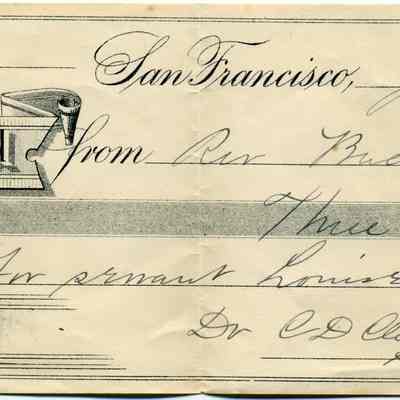 San Francisco,
from Rev
Three
for servant Louise
Dr C D